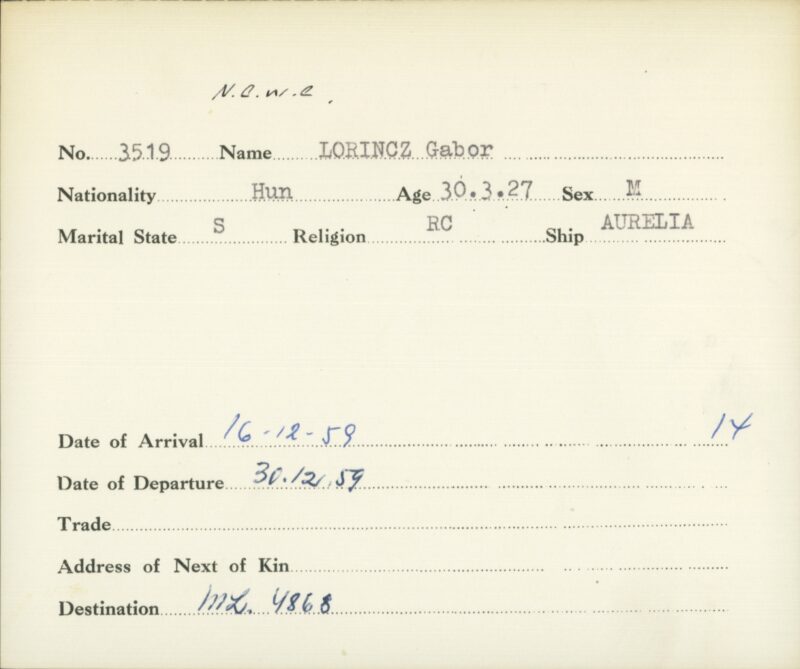 N.C.W.C.
No. 3519 Name LORINCZ Gabor
Nationality Hun Age 30.3.27 Sex M
Marital State S Religion RC Ship AURELIA
Date of Arrival 16-12-59 14
Date of Departure 30.12.59
Trade
Address of Next of Kin
Destination ML. 4868